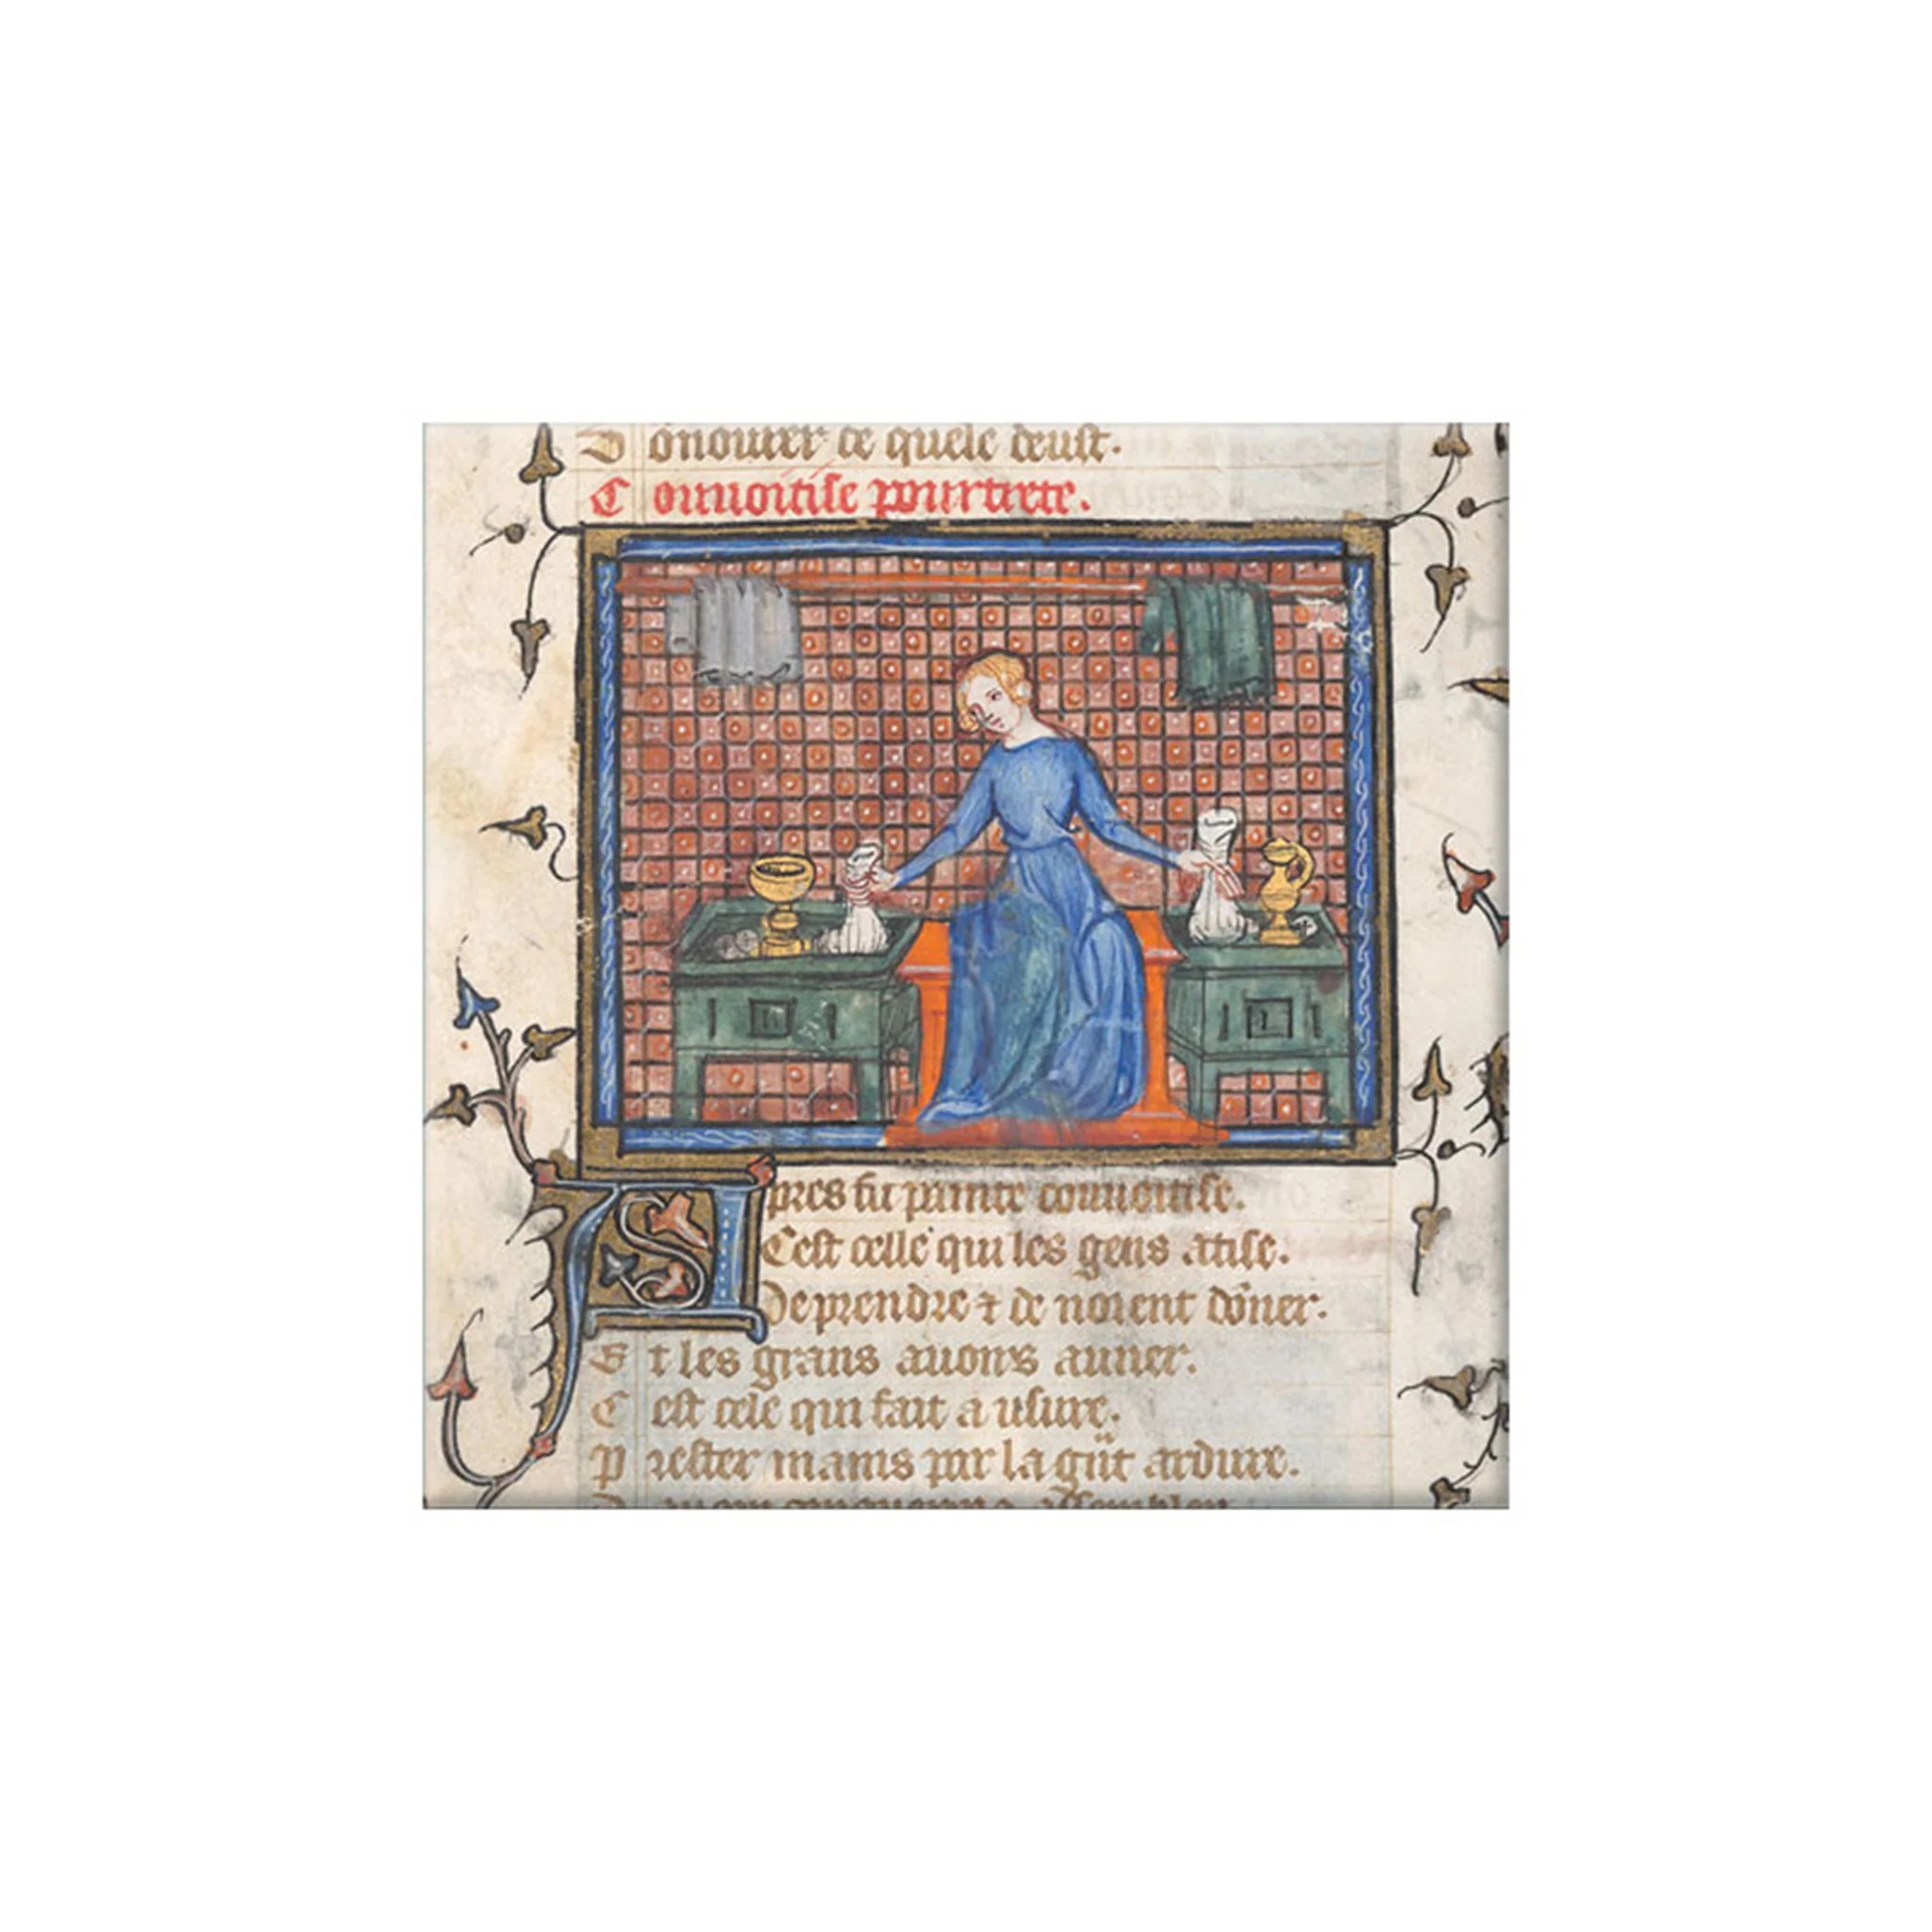 D onourer ce quele deust.
C onuoitise pourtrete.
A pres fu painte couuoitise.
C'est celle qui les gens atise.
De prendre ⁊ de noient dōner.
E t les grans auoirs auner.
C est cele qui fait a usure.
P rester mains por la gñt ardure.